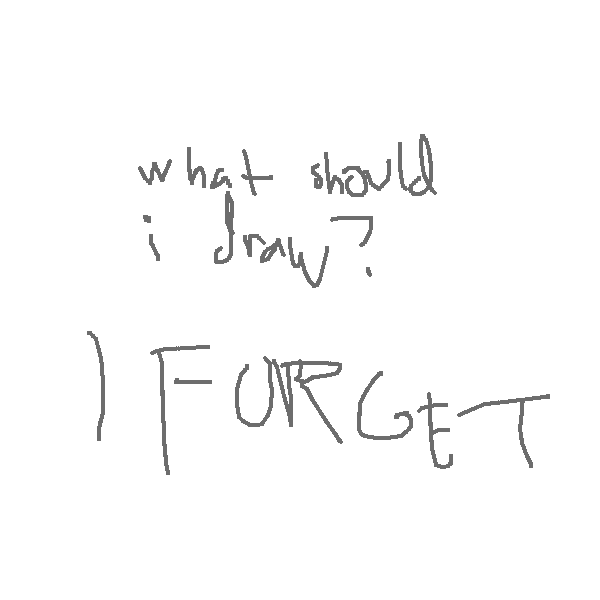 what should
i draw?
I FORGET